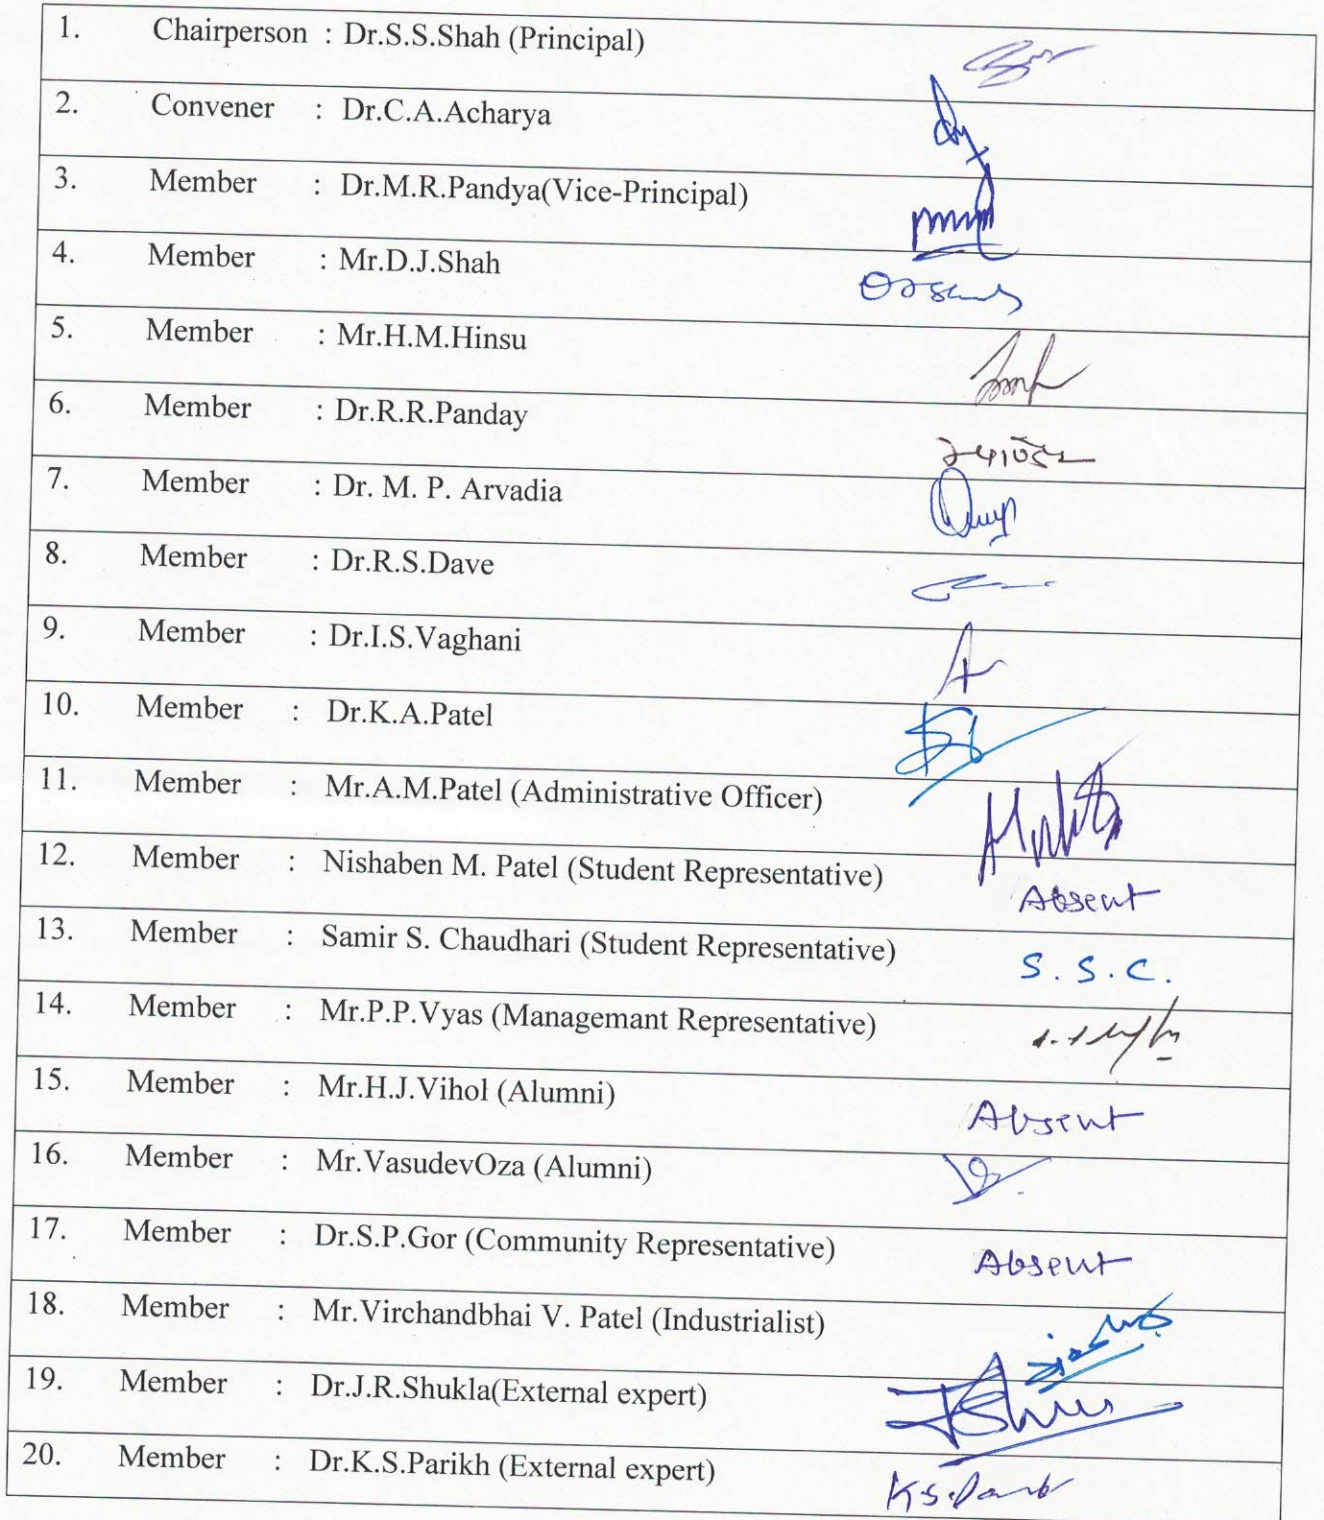 1. Chairperson : Dr.S.S.Shah (Principal)
2. Convener : Dr.C.A.Acharya
3. Member : Dr.M.R.Pandya(Vice-Principal)
4. Member : Mr.D.J.Shah
5. Member : Mr.H.M.Hinsu
6. Member : Dr.R.R.Panday
7. Member : Dr. M. P. Arvadia
8. Member : Dr.R.S.Dave
9. Member : Dr.I.S.Vaghani
10. Member : Dr.K.A.Patel
11. Member : Mr.A.M.Patel (Administrative Officer)
12. Member : Nishaben M. Patel (Student Representative) Absent
13. Member : Samir S. Chaudhari (Student Representative) S.S.C.
14. Member : Mr.P.P.Vyas (Managemant Representative)
15. Member : Mr.H.J.Vihol (Alumni) Absent
16. Member : Mr.VasudevOza (Alumni)
17. Member : Dr.S.P.Gor (Community Representative) Absent
18. Member : Mr.Virchandbhai V. Patel (Industrialist)
19. Member : Dr.J.R.Shukla(External expert)
20. Member : Dr.K.S.Parikh (External expert)